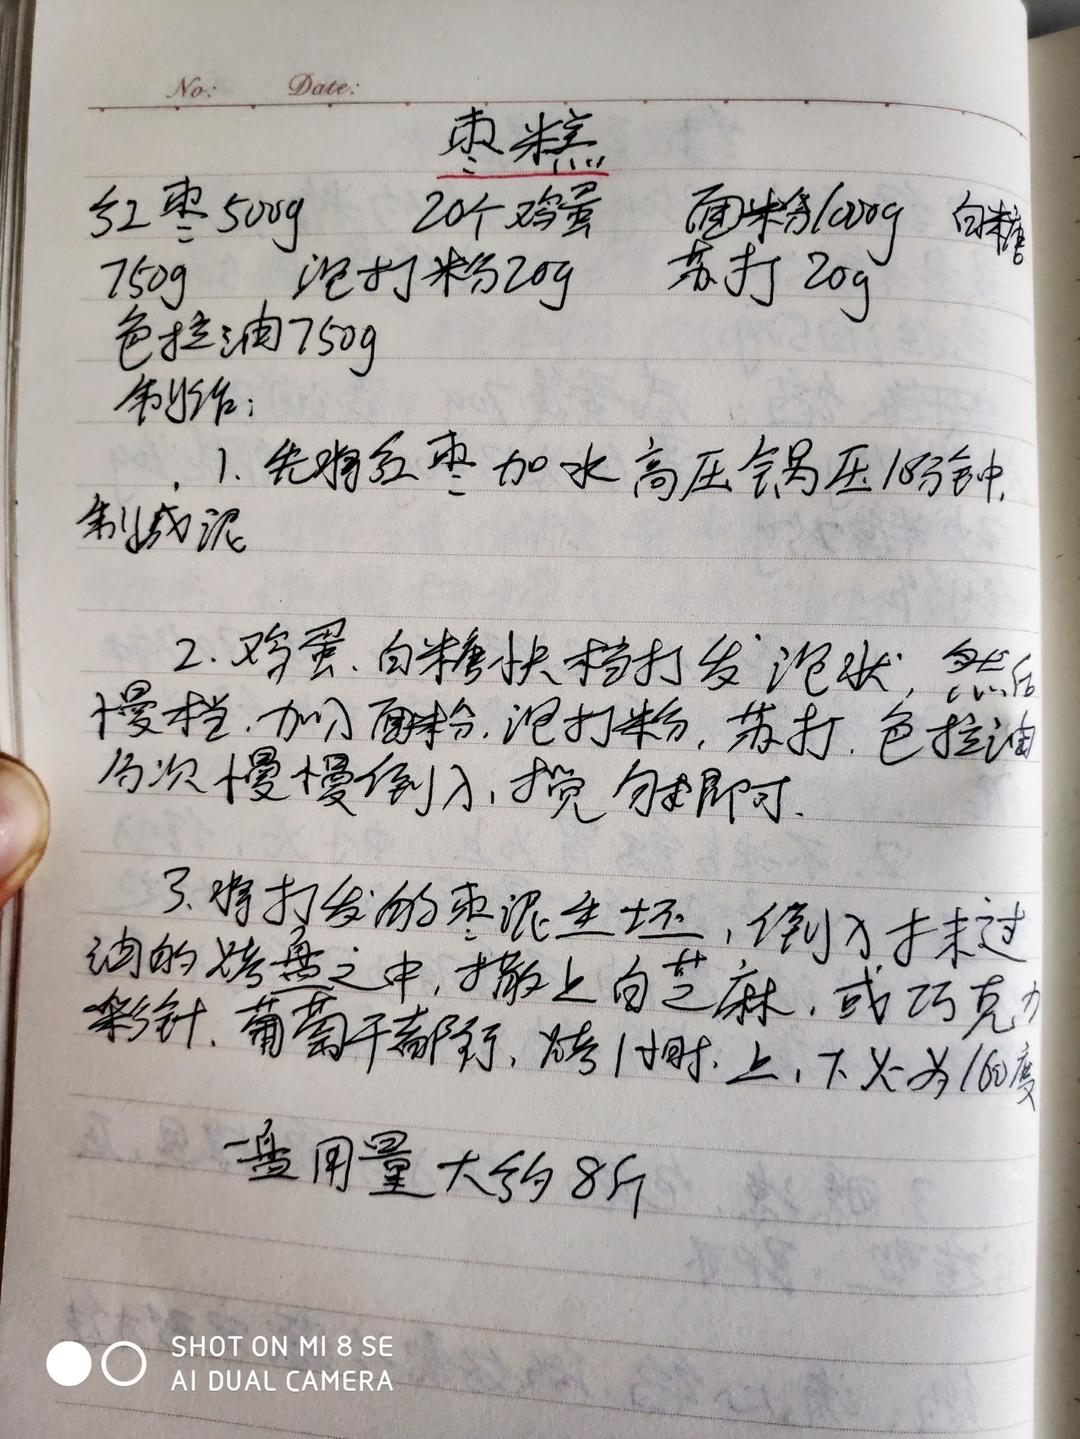 No: Date:
枣糕
红枣500g 20个鸡蛋 面粉1000g 白糖
750g 泡打粉20g 苏打 20g
色拉油750g
制作:
1. 先将红枣加水高压锅压18分钟,
制成泥
2. 鸡蛋、白糖快档打发泡状, 然后
慢档、加入面粉、泡打粉、苏打、色拉油
分次慢慢倒入, 搅匀即可.
3. 将打发的枣泥生坯, 倒入抹过
油的烤盘之中, 撒上白芝麻, 或巧克力
彩针、葡萄干都行, 烤1小时、上, 下火为160度
一盘用量大约8斤
SHOT ON MI 8 SE
AI DUAL CAMERA